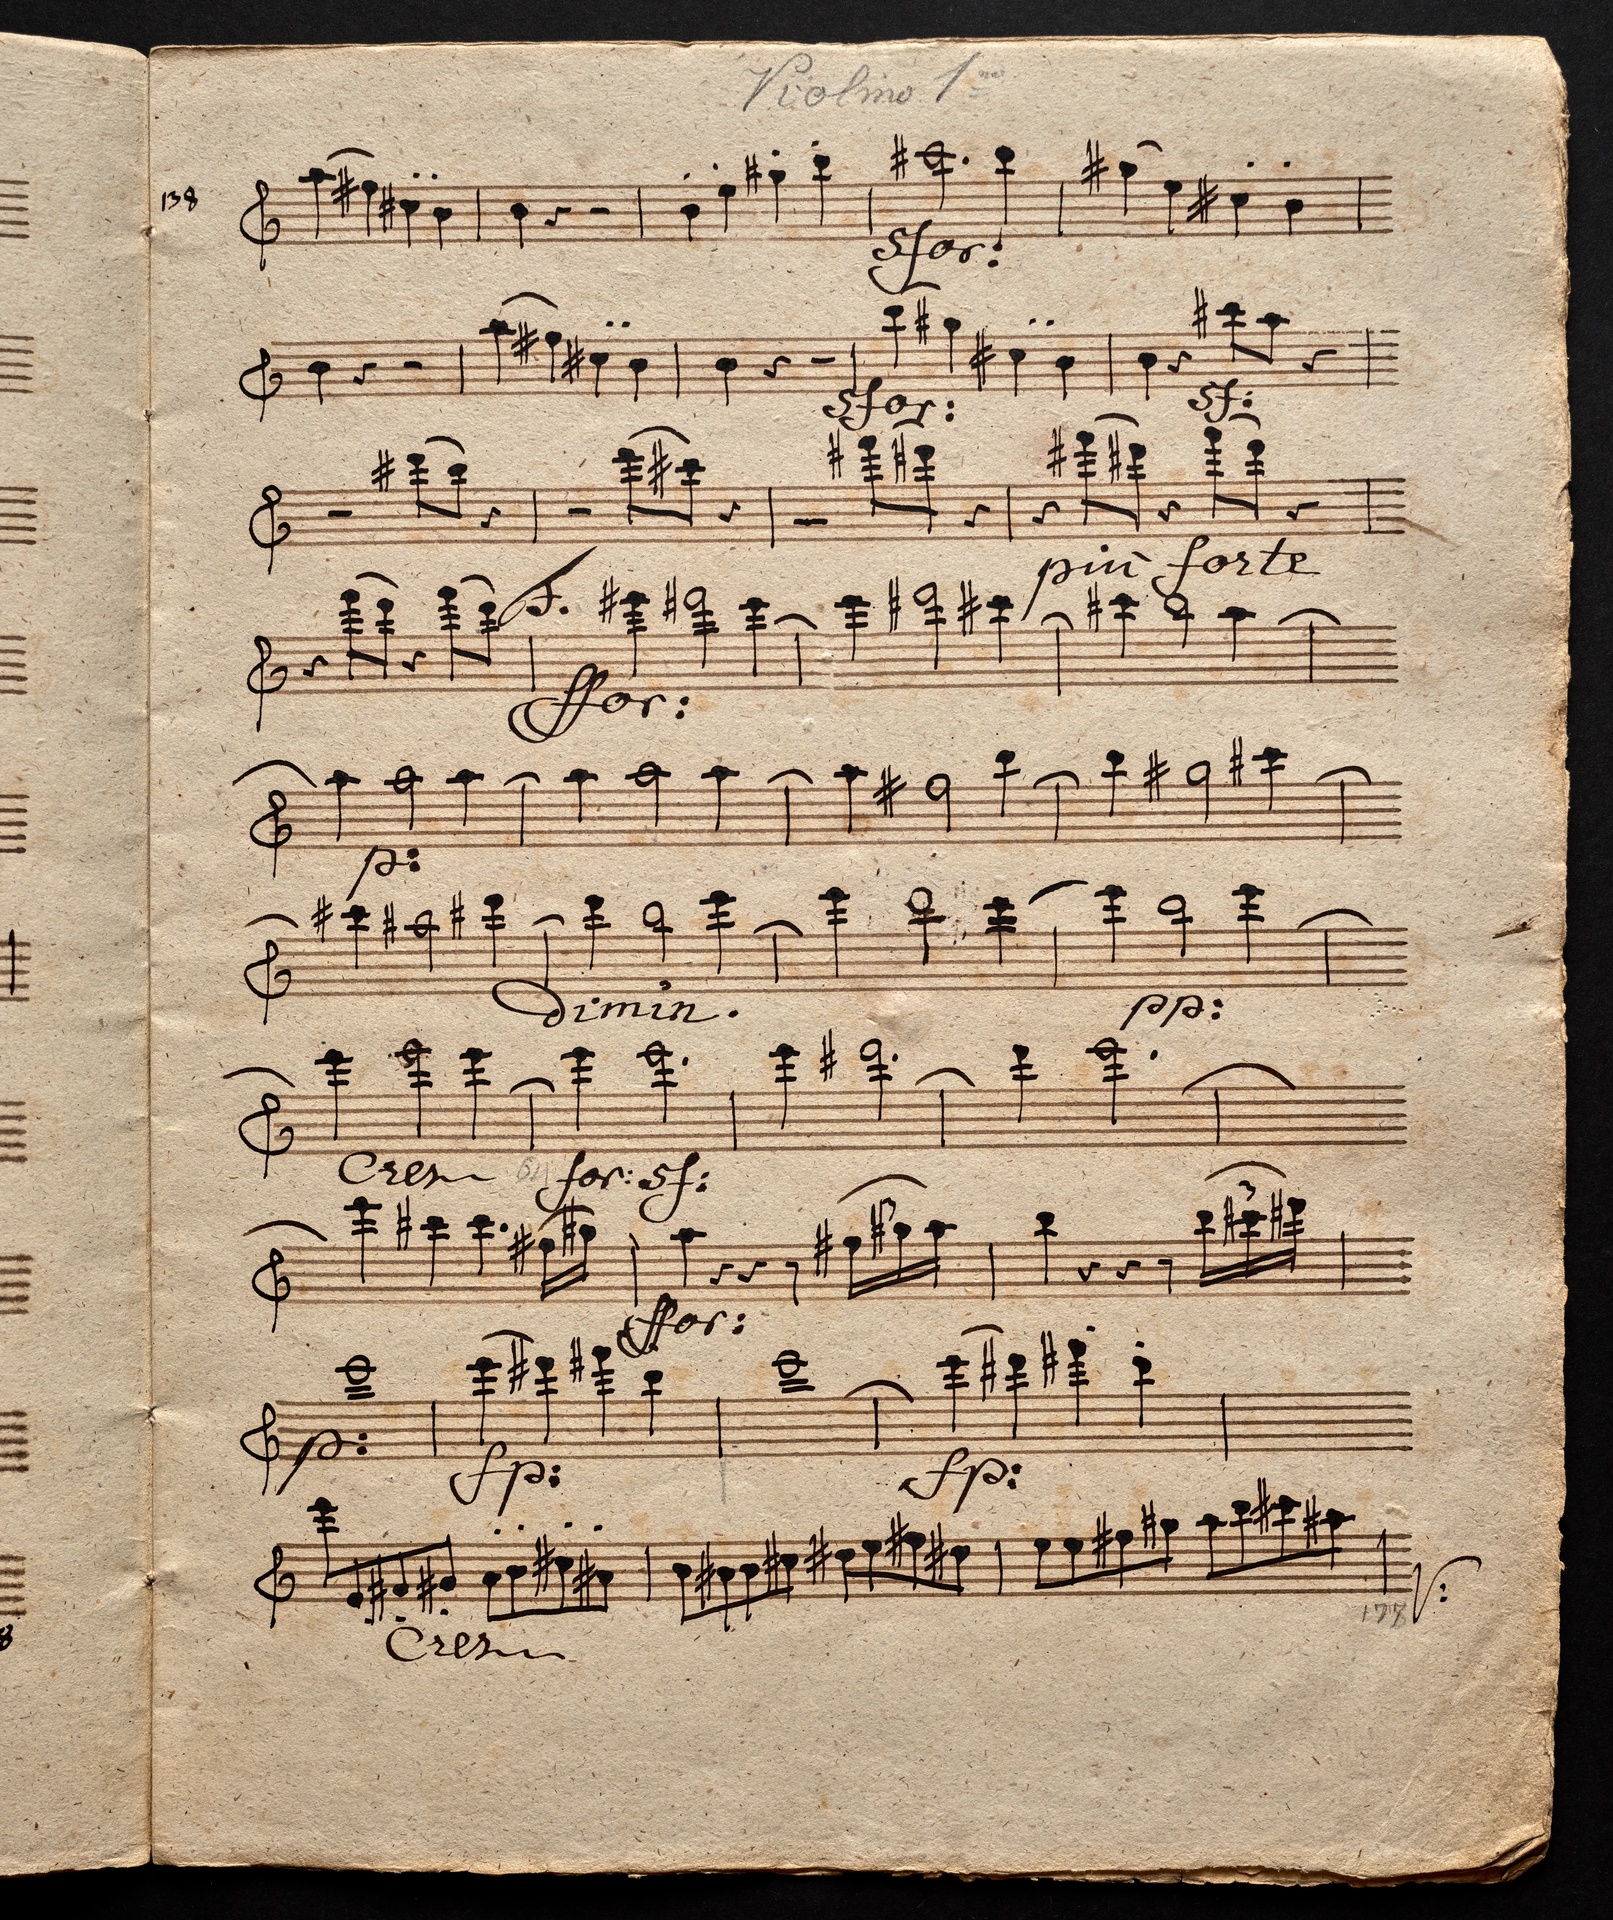 Violino 1mo
138
sfor:
sfor: sf:
più forte
f.
ffor:
p:
dimin. pp:
Cres for: sf:
3
ffor:
p: fp: fp:
Cres
177 V:
8